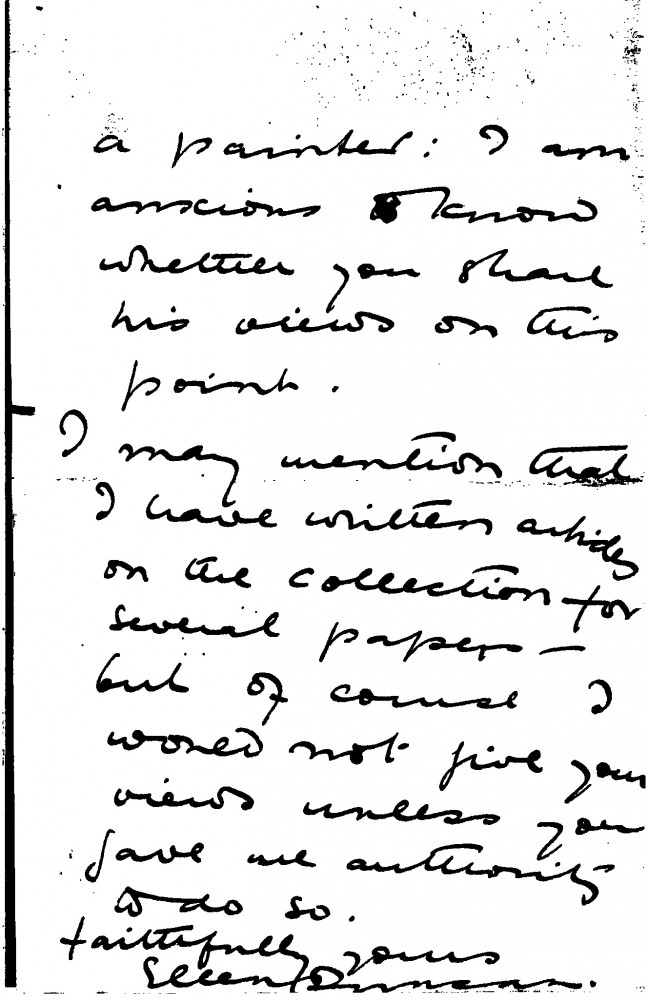 a painter: I am
anxious to know
whether you share
his views on this
point.
I may mention that
I have written articles
on the collection for
several papers –
but of course I
would not give your
views unless you
gave me authority
to do so.
Faithfully yours
Ellen Duncan.